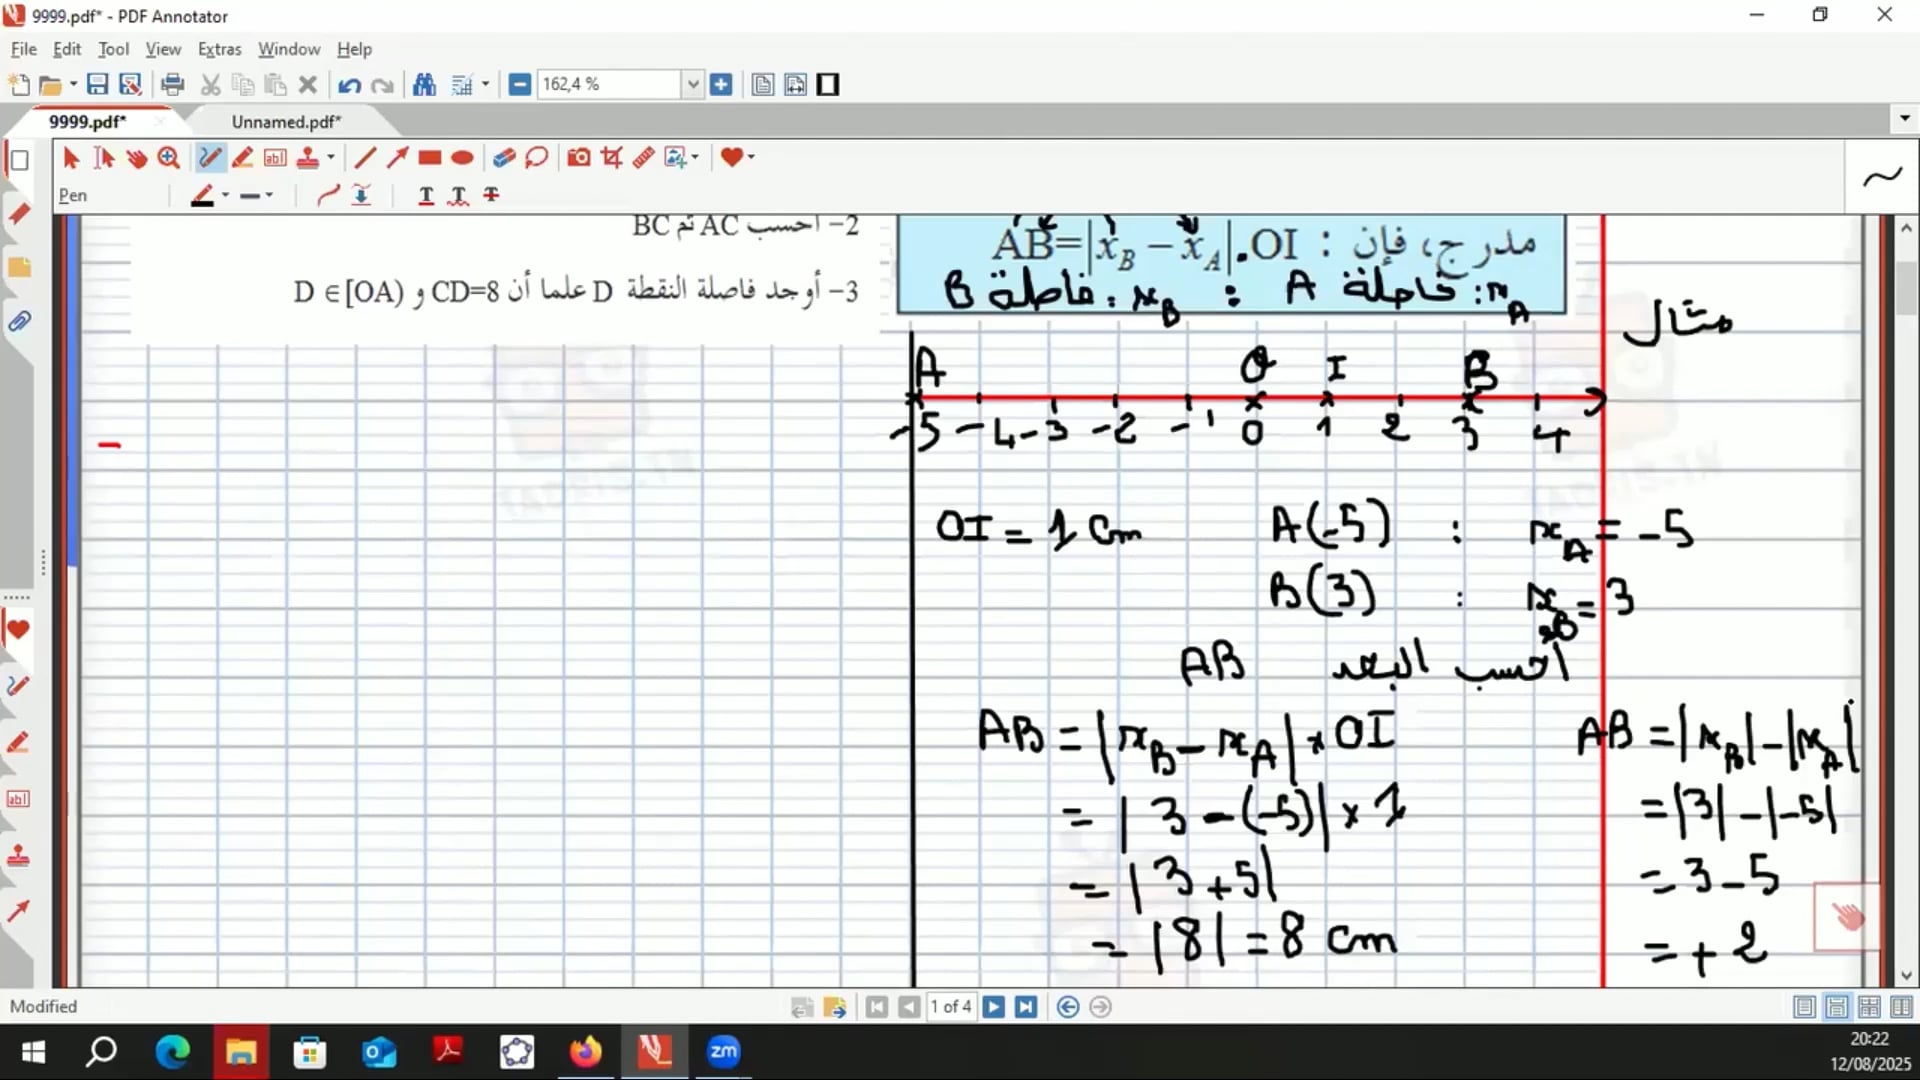 9999.pdf* - PDF Annotator
File Edit Tool View Extras Window Help
162,4 %
9999.pdf* Unnamed.pdf*
Pen
2- احسب AC ثم BC
3- أوجد فاصلة النقطة D علما أن CD=8 و D ∈ [OA)
مدرج، فإن : AB=|x_B − x_A|.OI
x_A: فاصلة A : x_B: فاصلة B
مثال
A O I B
-5 -4 -3 -2 -1 0 1 2 3 4
OI = 1 cm A(-5) : x_A = -5
B(3) : x_B = 3
احسب البعد AB
AB = |x_B - x_A| × OI
= |3 - (-5)| × 1
= |3 + 5|
= |8| = 8 cm
AB = |x_B| - |x_A|
= |3| - |-5|
= 3 - 5
= + 2
TADRIS.TN
TADRIS.TN
Modified
1 of 4
20:22
12/08/2025